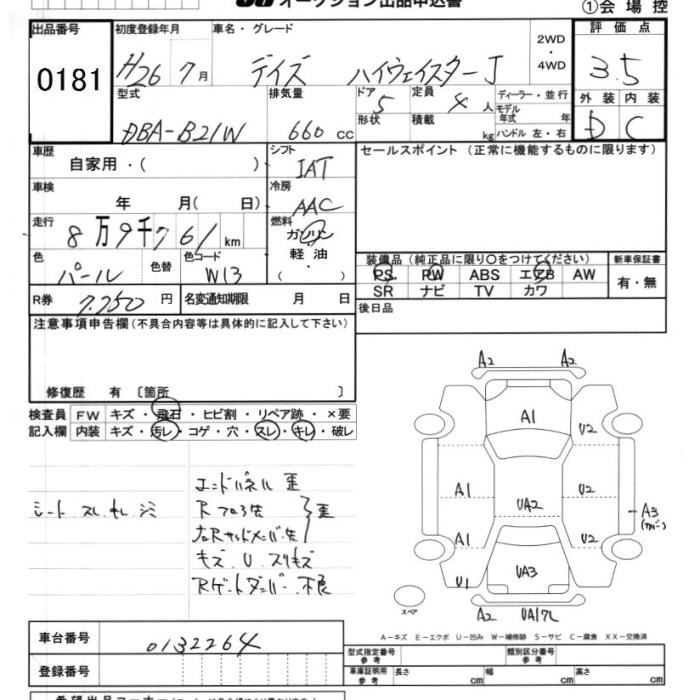 オークション出品申込書
①会場控
出品番号 初度登録年月 車名・グレード 評価点
0181 H26 7月 デイズ ハイウェイスターJ 2WD・4WD 3.5
型式 排気量 ドア 5 定員 4 人 ディーラー・並行 外装 内装
モデル年式 年
DBA-B21W 660 cc 形状 積載 kg ハンドル 左・右 D C
車歴 自家用・( ) シフト IAT セールスポイント (正常に機能するものに限ります)
車検 年 月( 日) 冷房 AAC
走行 8万9千761km 燃料 ガソリン
軽油
・( )
色 パール 色替 色コード W13
装備品(純正品に限り○をつけてください) 新車保証書
PS PW ABS エアB AW 有・無
SR ナビ TV カワ
R券 7,250 円 名変通知期限 月 日 後日品
注意事項申告欄(不具合内容等は具体的に記入して下さい)
修復歴 有 〔箇所 〕
検査員 FW キズ・飛石・ヒビ割・リペア跡・×要
記入欄 内装 キズ・汚レ・コゲ・穴・スレ・キレ・破レ
エンドパネル 歪
シート スレ キレ シミ
Rフロア左 歪
左Rサイドメンバー先
キズ U スリキズ
Rゲートダンパー 不良
A2 A2
A1 U2
A1 UA2 U2
A1 U2 A3
U1 UA3
スペア A2 UA17L
A−キズ E−エクボ U−凹み W−補修跡 S−サビ C−腐食 XX−交換済
車台番号 0132264
登録番号
型式指定番号 参考 類別区分番号 参考
車庫証明用 参考 長さ cm 幅 cm 高さ cm